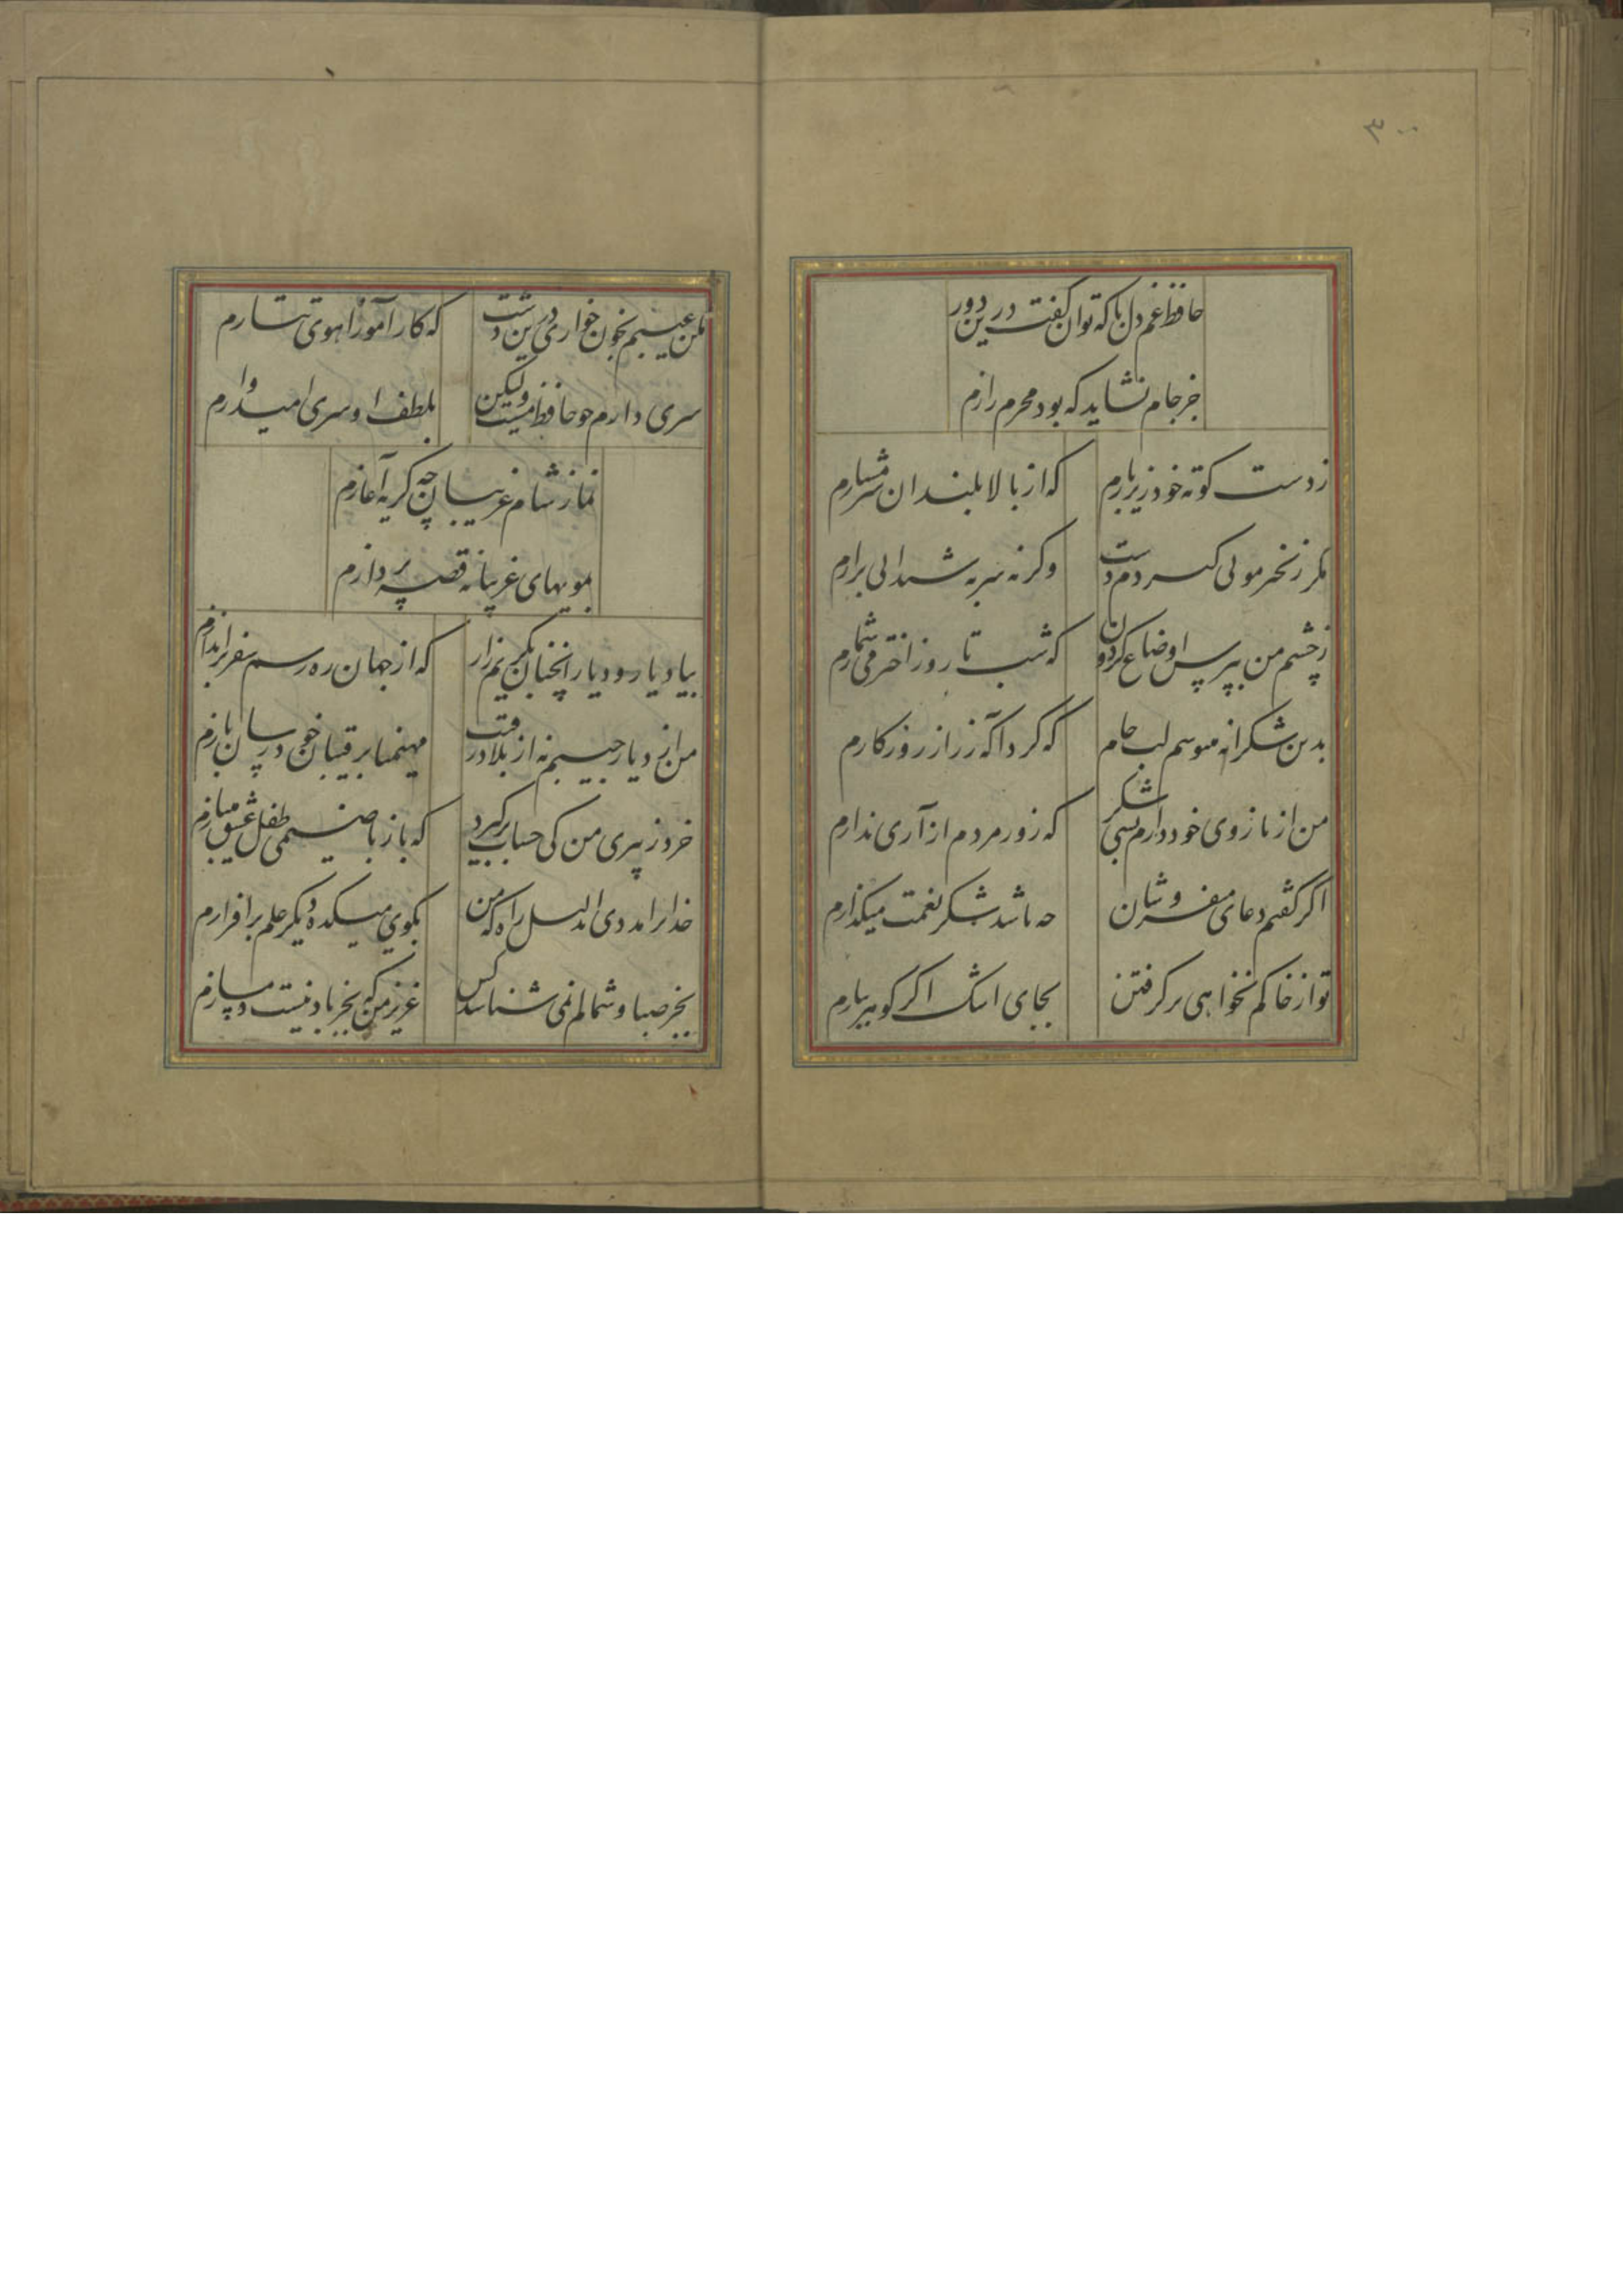 ۳۰۰
حافظ غم دل با که توان گفت درین دور
جز جام نشاید که بود محرم رازم
ز دست کوته خود زیر بارم
که از بالا بلندان شرمسارم
مکر زنجیر مویی کیردم دست
وکرنه سر به شیدایی برارم
ز چشم من بپرس اوضاع کردون
که شب تا روز اختر می شمارم
بدین شکرانه میبوسم لب جام
که کرد آکه ز راز روزکارم
من از بازوی خود دارم بسی شکر
که زور مردم ازاری ندارم
اکر گفتم دعای میفروشان
چه باشد شکر نعمت میکذارم
تو از خاکم نخواهی برکرفتن
بجای اشک اکر کوهر ببارم
مکن عیبم بخون خواری درین دشت
که کار آموز آهوی تتارم
سری دارم چو حافظ مست ولیکن
بلطف او سری امیدوارم
نماز شام غریبان چو کریه آغازم
بمویهای غریبانه قصه پردازم
بیاد یار و دیار انچنان بکریم زار
که از جهان ره و رسم سفر براندازم
من از دیار حبیبم نه از بلاد رقیب
مهیمنا برفیقان خود رسان بازم
خرد ز پیری من کی حساب برکیرد
که باز با صنمی طفل عشق میبازم
خدایرا مددی ای دلیل راه که من
بکوی میکده دیکر علم برافرازم
بجز صبا و شمالم نمی شناسد کس
عزیز من که بجز باد نیست دمسازم